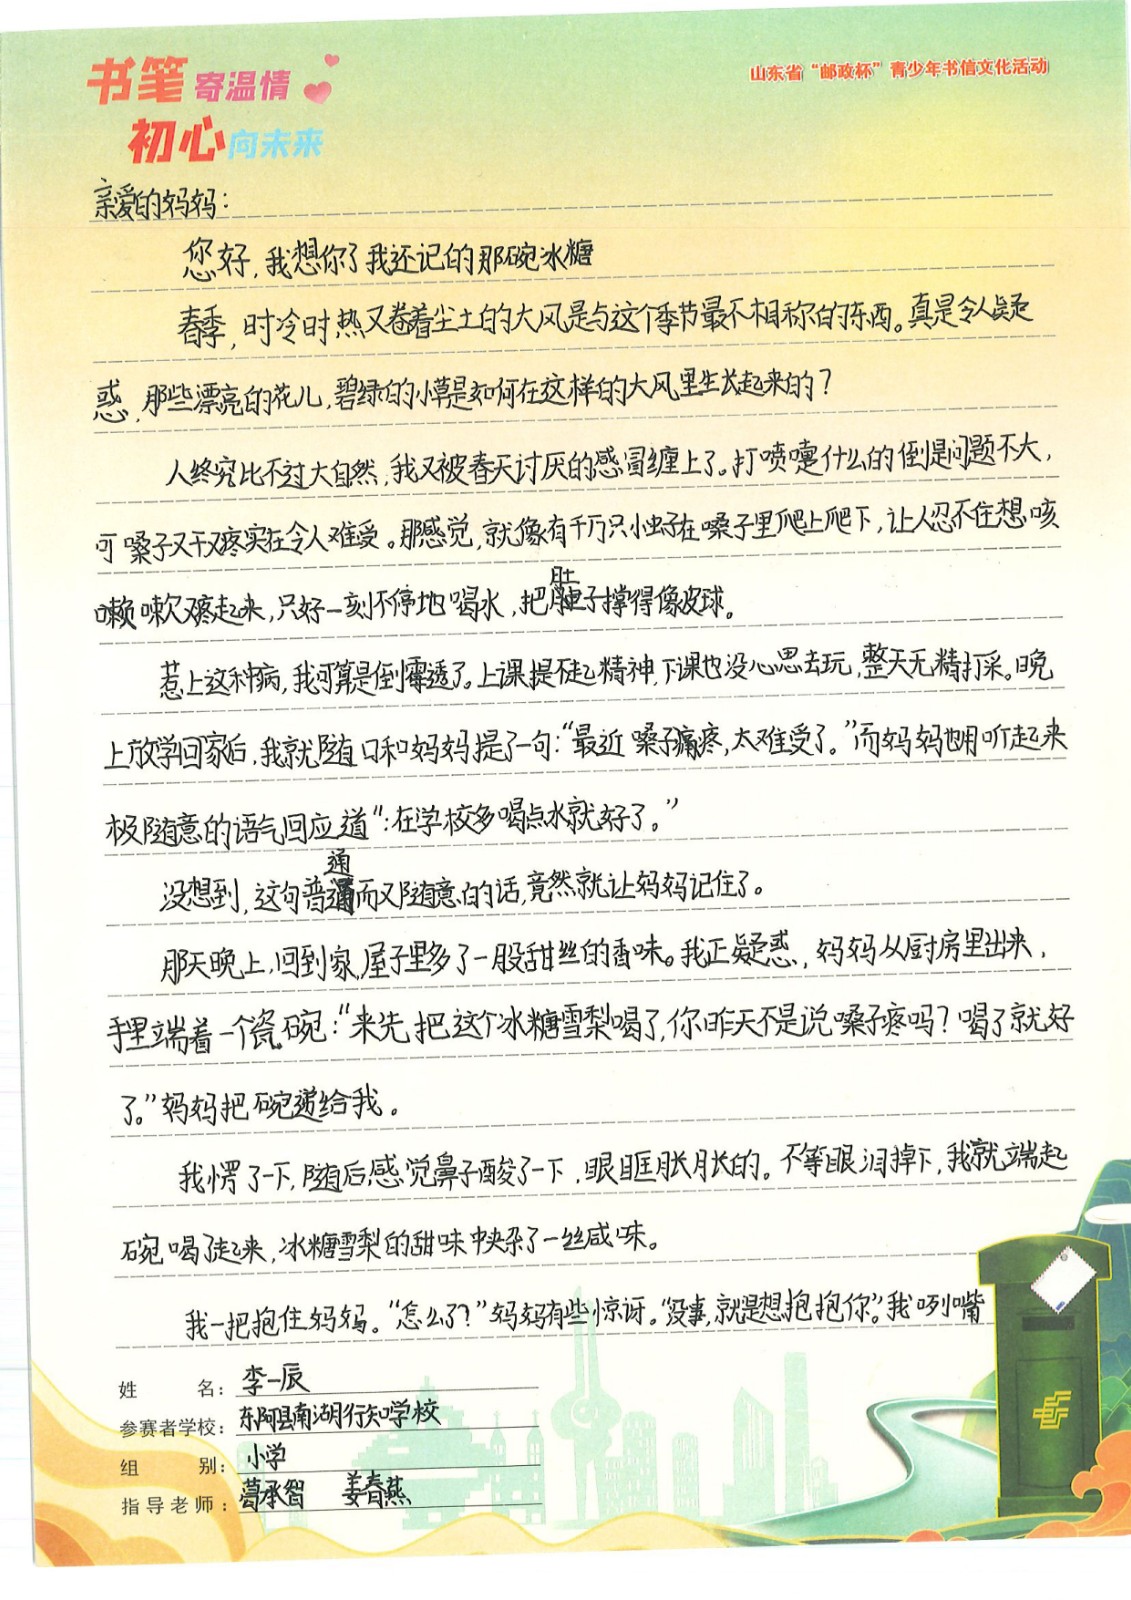 书笔寄温情
初心向未来
山东省“邮政杯”青少年书信文化活动
亲爱的妈妈：
您好，我想你了我还记的那碗冰糖
春季，时冷时热又卷着尘土的大风是与这个季节最不相称的东西。真是令人疑
惑，那些漂亮的花儿，碧绿的小草是如何在这样的大风里生长起来的？
人终究比不过大自然，我又被春天讨厌的感冒缠上了。打喷嚏什么的倒是问题不大，
可嗓子又干又疼实在令人难受。那感觉，就像有千万只小虫子在嗓子里爬上爬下，让人忍不住想咳
嗽嗽又疼起来，只好一刻不停地喝水，把肚子撑得像皮球。
惹上这种病，我可算是倒霉透了。上课提不起精神，下课也没心思去玩，整天无精打采。晚
上放学回家后，我就随口和妈妈提了一句：“最近嗓子痛疼，太难受了。”而妈妈也用听起来
极随意的语气回应道“：在学校多喝点水就好了。”
没想到，这句普通而又随意的话，竟然就让妈妈记住了。
那天晚上，回到家，屋子里多了一股甜丝的香味。我正疑惑，妈妈从厨房里出来，
手里端着一个瓷碗：“来先把这个冰糖雪梨喝了，你昨天不是说嗓子疼吗？喝了就好
了。”妈妈把碗递给我。
我愣了一下，随后感觉鼻子酸了一下，眼眶胀胀的。不等眼泪掉下，我就端起
碗喝了起来，冰糖雪梨的甜味中夹杂了一丝咸味。
我一把抱住妈妈。“怎么了？”妈妈有些惊讶。“没事，就是想抱抱你”。我咧嘴
姓名：李一辰
参赛者学校：东阿县南湖行知学校
组别：小学
指导老师：葛承智 姜春燕